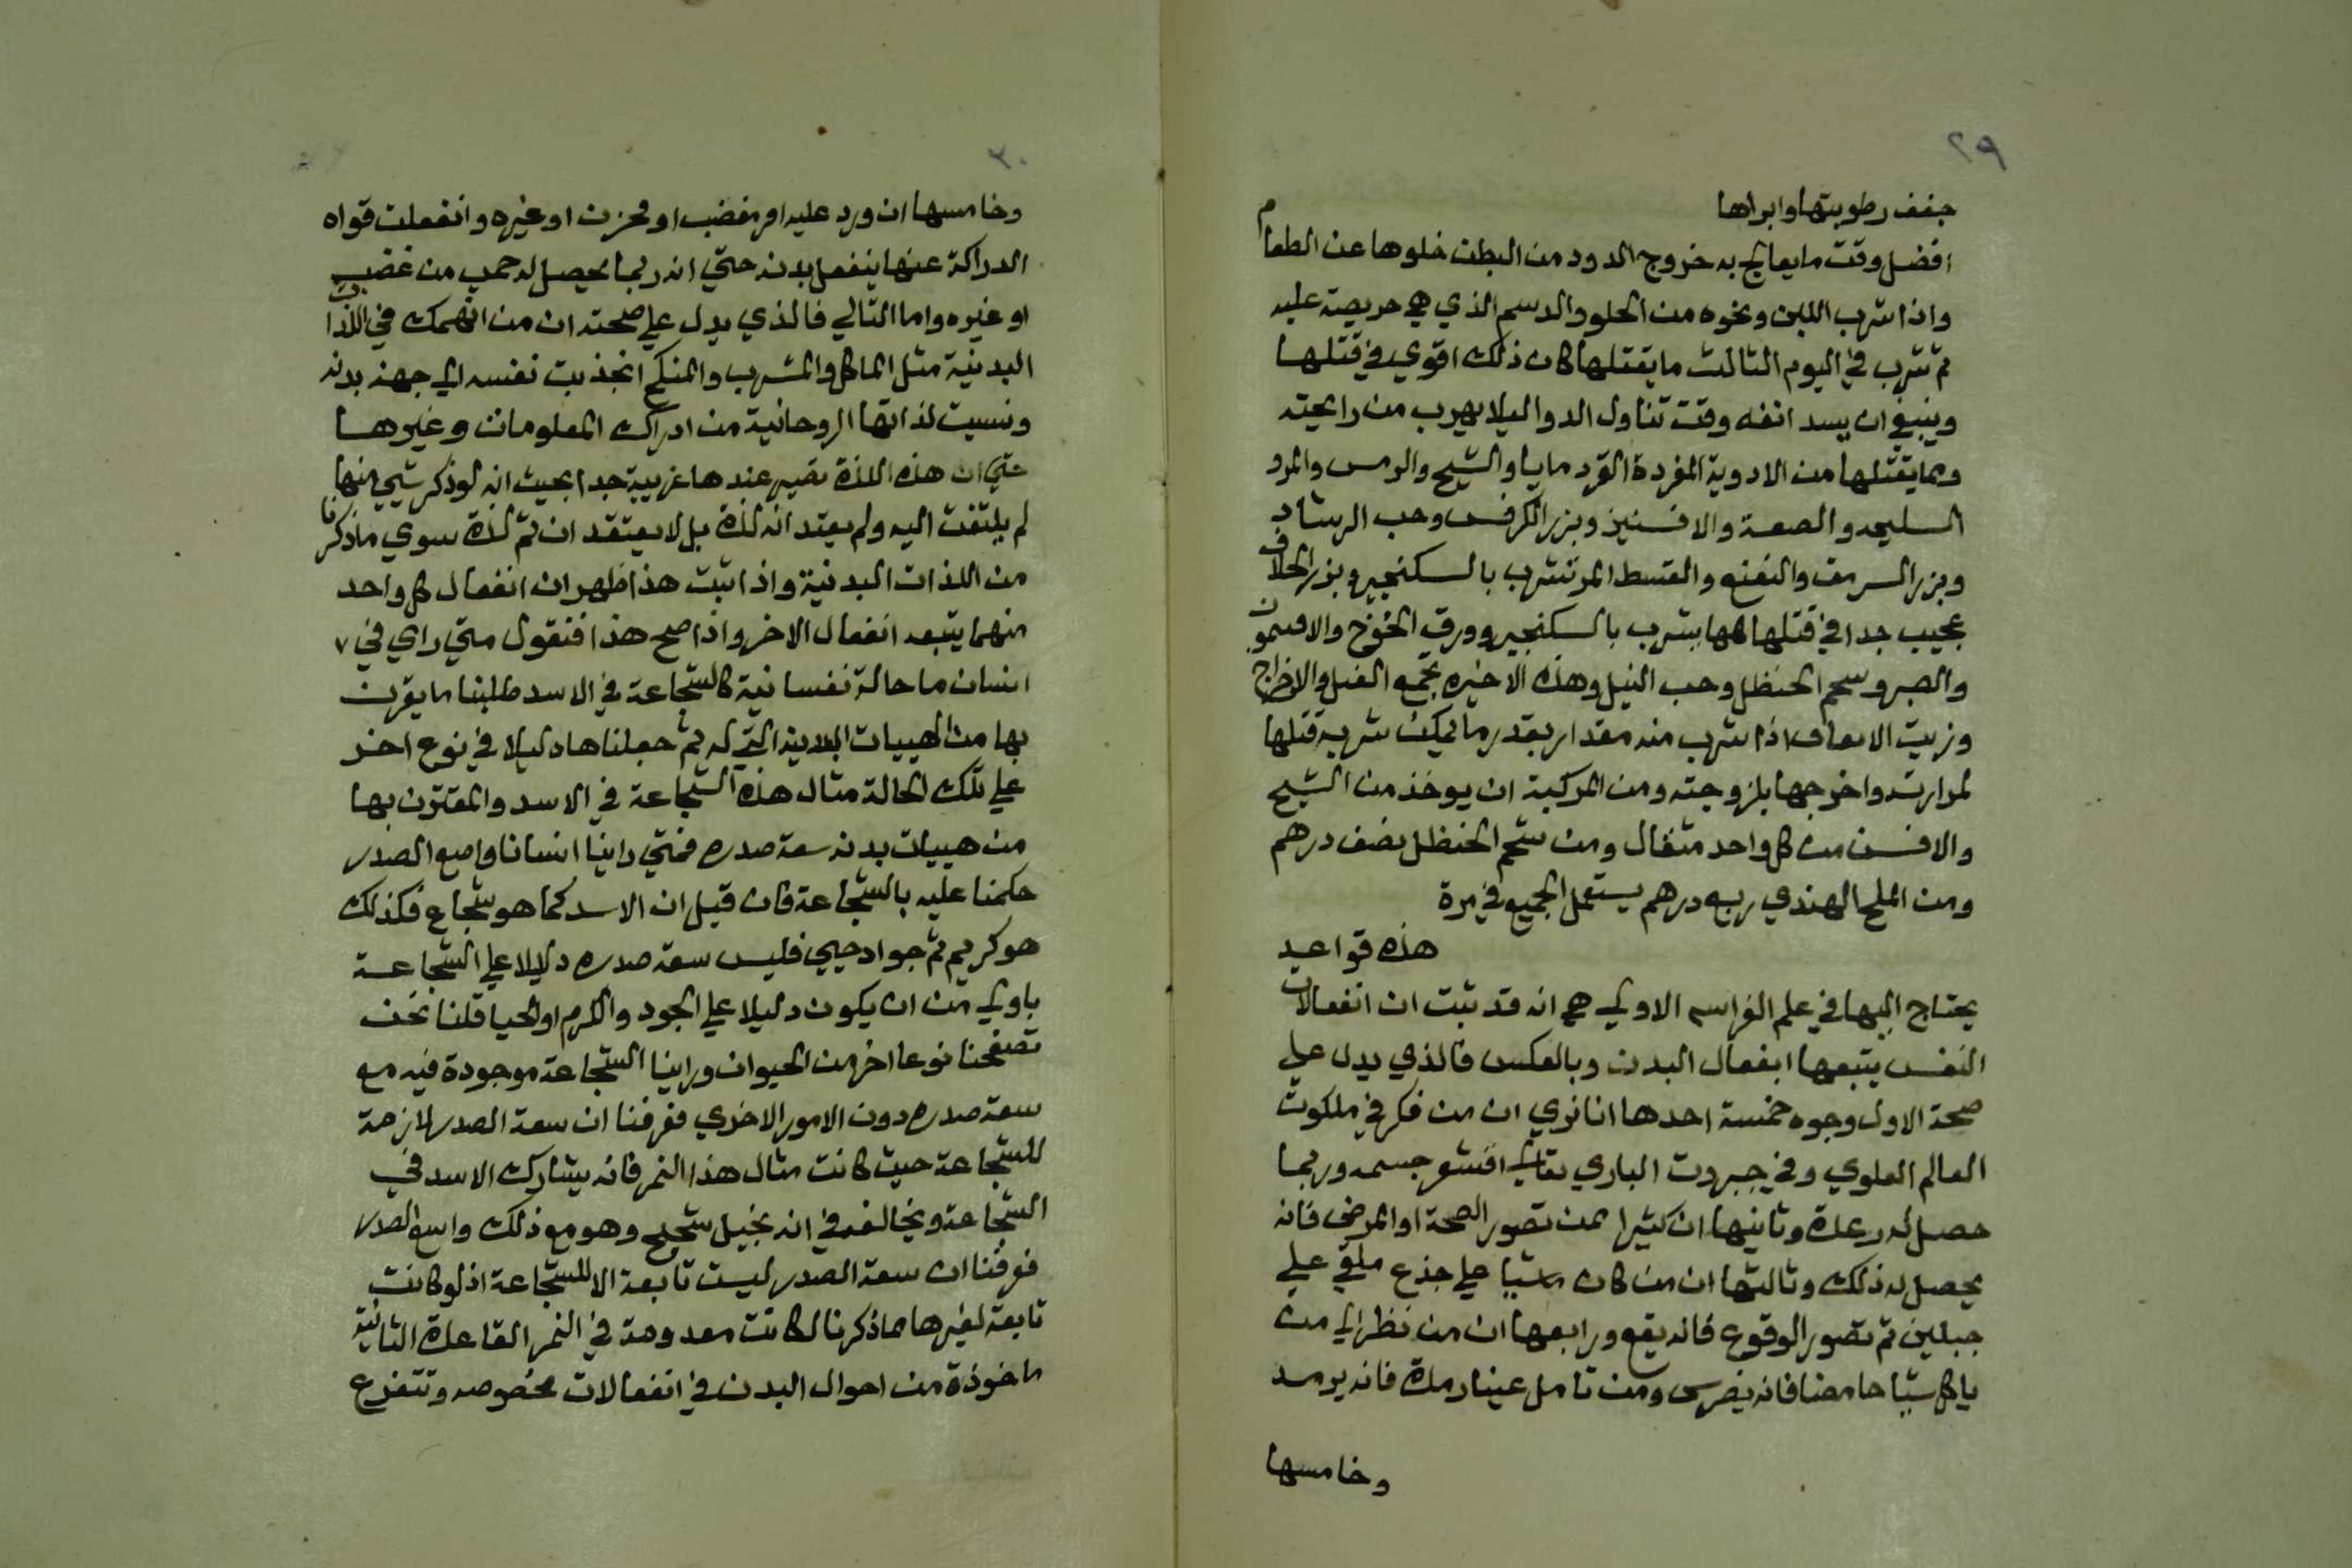 ٢٩
جفف رطوبتها وابراها
افضل وقت ما يعالج به خروج الدود من البطن خلوها عن الطعام
واذا شرب اللبن ونحوه من الحلو والدسم الذي هي حريصة عليه
ثم شرب في اليوم الثالث ما يقتلها كان ذلك اقوي في قتلها
وينبغي ان يسد انفه وقت تناول الدوا ليلا يهرب من رايحته
ومما يقتلها من الادوية المفردة القردمايا والشيح والرمس والمرو
السليحه والصعة والافسنين وبزر الكرفس وحب الرشاد
وبزر السرمق والنعنع والقسط المر تشرب بالسكنجبير وبزر الخلاف
عجيب جدا في قتلها لهها يشرب بالسكنجبير وورق الخوخ والافيمون
والصبر وسحم الحنظل وحب النيل وهذه الاخيره تجمع القتل والاخراج
وزيت الانفاق اذا شرب منه مقدار بقدر ما يمكن شربه قتلها
لمرارته واخرجها بلزوجته ومن المركبة ان يوخذ من الشيح
والافسن من كل واحد مثقال ومن شحم الحنظل نصف درهم
ومن الملح الهندي ربع درهم يستعمل الجميع في مرة
هذه قواعيد
يحتاج اليها في علم الفراسه الاولي هي انه قد ثبت ان انفعالات
النفس يتبعها ابفعال البدن وبالعكس فالذي يدل علي
صحة الاول وجوه خمسة احدها انا نري ان من فكر في ملكوت
العالم العلوي وفي جبروت الباري تعالي اقشعر جسمه وربما
حصل له رعدة وثانيها ان كثيرا ممن تصور الصحة او المرض فانه
يحصل له ذلك وثالثها ان من كان ماشيا علي جذع ملقي علي
جبلين ثم تصور الوقوع فانه يقع ورابعها ان من نظر الي من
ياكل شيا حامضا فانه يضرس ومن تامل عينا رمدة فانه يرمد
وخامسها
٣٠
وخامسها ان ورد عليه امر مغضب او محزن او غيره وانفعلت قواه
الدراكة عنها ينفعل بدنه حتي انه ربما يحصل له حمي من غضب
او غيره واما التالي فالذي يدل علي صحته ان من انهمك في اللذات
البدنية مثل الماكل والمشرب والمنكح انجذبت نفسه الي جهة بدنه
ونسيت لذاتها الروحانية من ادراك المعلومات وغيرها
حتي ان هذه اللذة تصير عندها غريبة جدا بحيث انه لو ذكر شيي منها
لم يلتفت اليه ولم يعتد انه لذة بل لا يعتقد ان ثم لذة سوي ما ذكرنا
من اللذات البدنية واذا ثبت هذا ظهر ان انفعال كل واحد
منهما يتبعه انفعال الاخر واذا صح هذا فنقول متي راي في ٧
انسان ما حالة نفسانية كالشجاعة في الاسد طلبنا ما يقرن
بها من الهييات البدنية التي له ثم جعلناها دليلا في نوع اخر
علي تلك الحالة مثال هذه الشجاعة في الاسد والمقترن بها
من هييات بدنه سعة صدره فمتي راينا انسانا واسع الصدر
حكمنا عليه بالشجاعة فان قيل ان الاسد كما هو شجاع فكذلك
هو كريم ثم جواد حيي فليس سعة صدره دليلا علي الشجاعة
باولي من ان يكون دليلا علي الجود والكرم او الحيا قلنا نحن
تصفحنا نوعا اخر من الحيوان وراينا الشجاعة موجودة فيه مع
سعة صدره دون الامور الاخري فعرفنا ان سعة الصدر لازمة
للشجاعة حيث كانت مثال هذا النمر فانه يشارك الاسد في
الشجاعة ويخالفه في انه بخيل شحيح وهو مع ذلك واسع الصدر
فعرفنا ان سعة الصدر ليست تابعة الا للشجاعة اذ لو كانت
تابعة لغيرها مما ذكرنا لكانت معدومة في النمر القاعدة الثانية
ماخوذة من احوال البدن في انفعالات مخصوصه وتتفرع